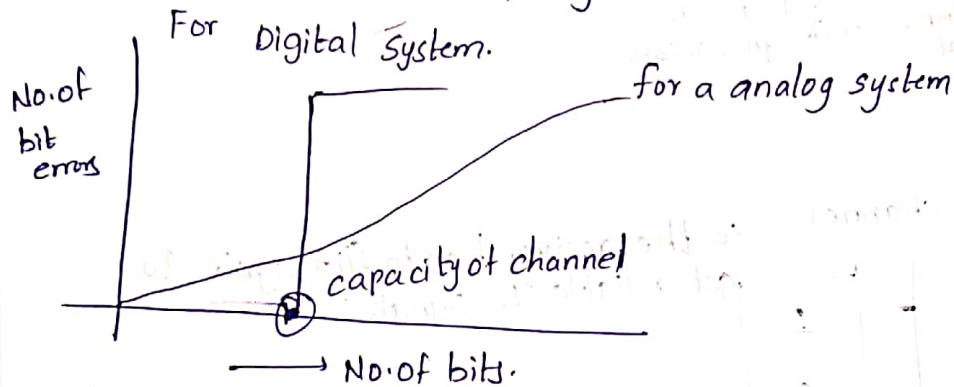 For Digital System.
No.of
bit
errors
for a analog system
capacity of channel
No.of bits.